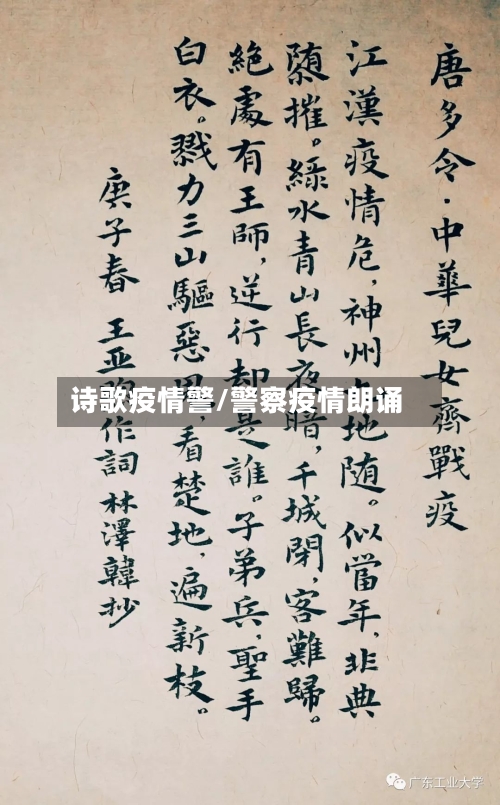 唐多令·中華兒女齊戰疫
江漢疫情危，神州地随。似當年，非典
摧。綠水青山長夜暗，千城閉，客難歸。
絕處有王師，逆行却是誰。子弟兵，聖手
白衣。戮力三山驅惡，看楚地，遍新枝。
庚子春 王亚作詞 林澤韓抄
诗歌疫情警/警察疫情朗诵
广东工业大学